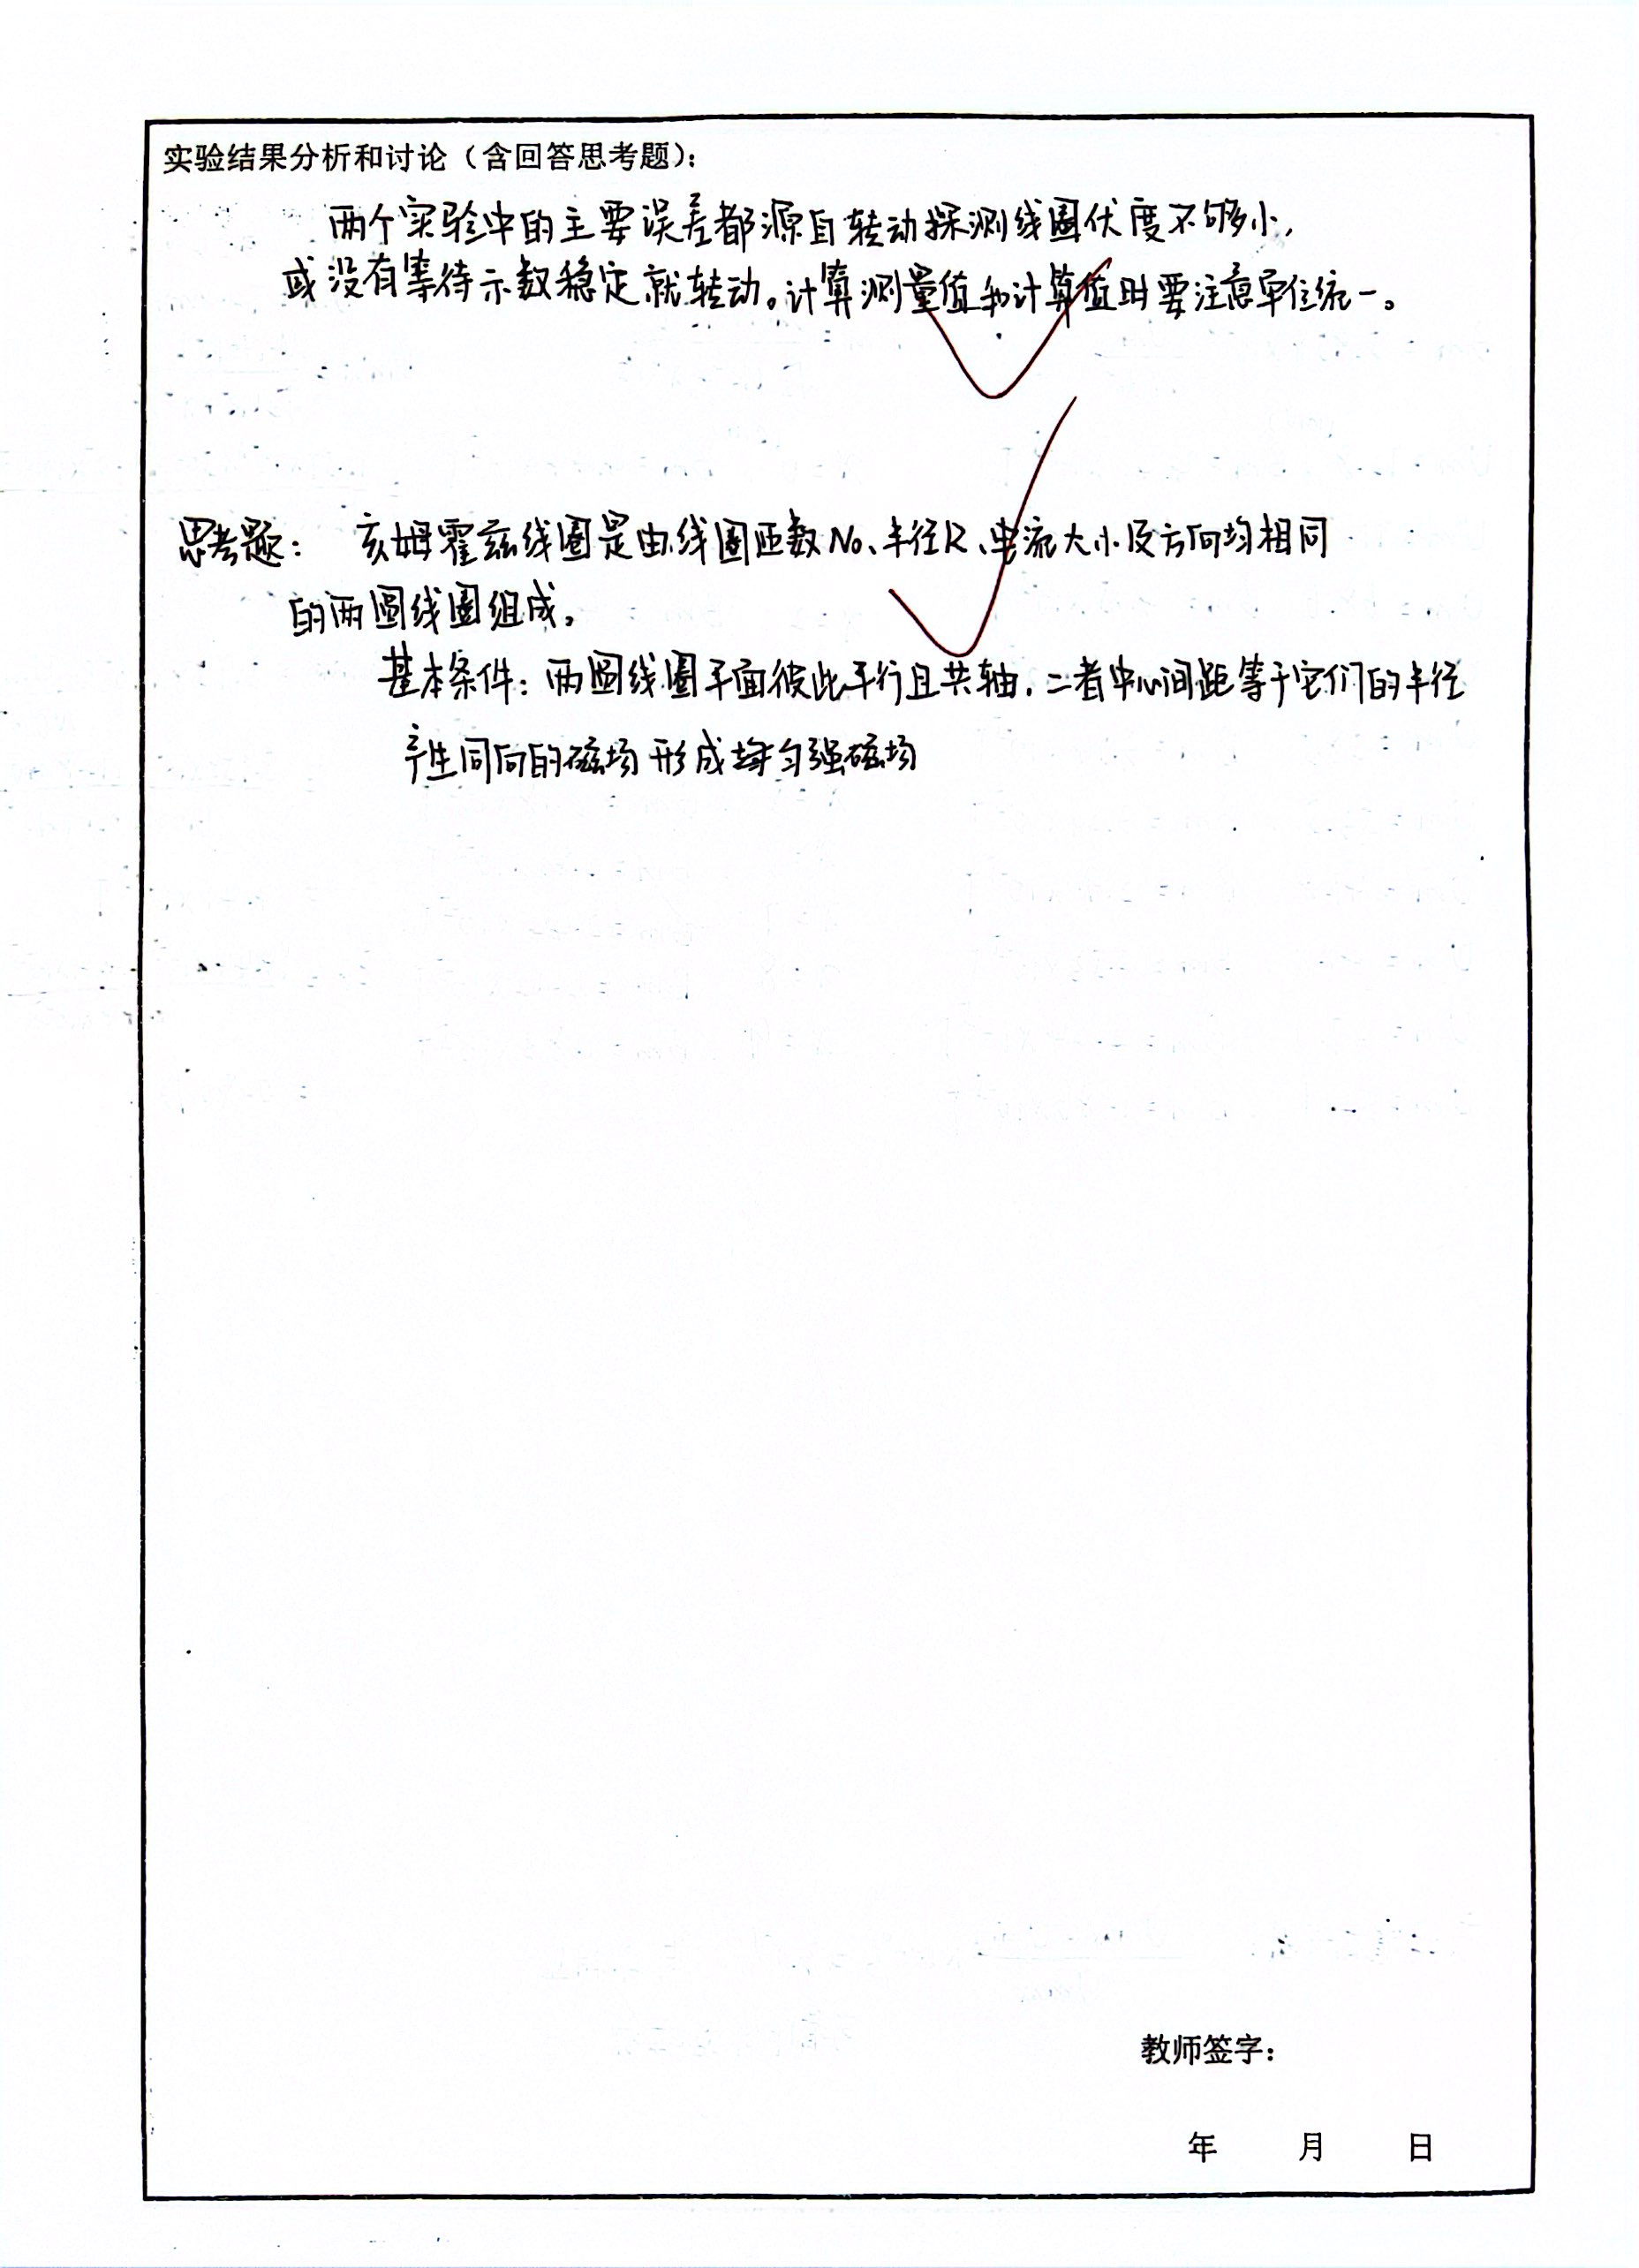 实验结果分析和讨论（含回答思考题）：
两个实验中的主要误差都源自转动探测线圈伏度不够小，
或没有等待示数稳定就转动。计算测量值和计算值时要注意单位统一。
思考题： 亥姆霍兹线圈是由线圈匝数N₀、半径R、电流大小及方向均相同
的两圆线圈组成。
基本条件：两圆线圈平面彼此平行且共轴，二者中心间距等于它们的半径
产生同向的磁场 形成匀强磁场
教师签字：
年 月 日